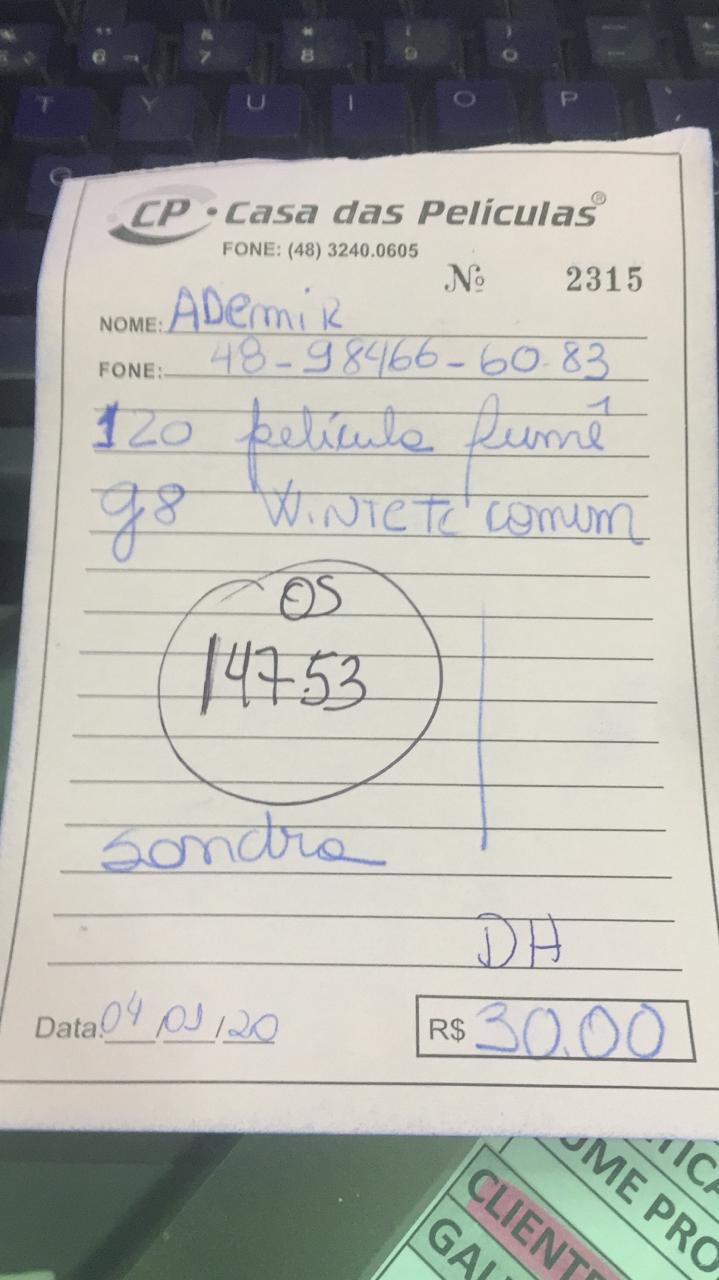 CP • Casa das Películas®
FONE: (48) 3240.0605
Nº 2315
NOME: ADemiR
FONE: 48-98466-60.83
120 película fumê
g8 WiNTETC comum
OS
14753
sandra
DH
Data: 04/01/20
R$ 30.00
T Y U I O P
6 7 8 9 0
UME PRO
CLIENTE
GAL